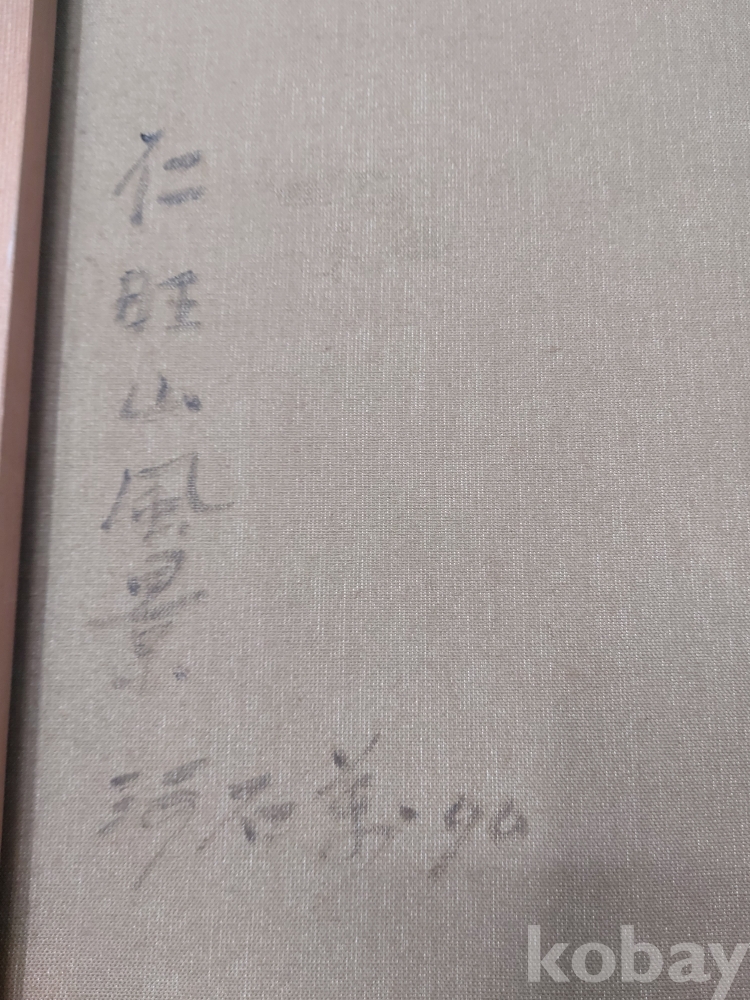 仁旺山風景
石 90
kobay